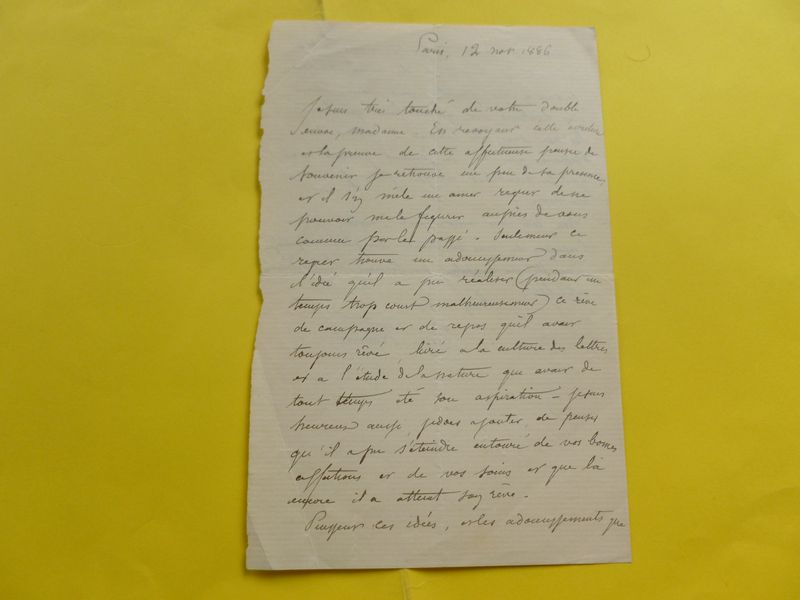 Paris, 12 nov 1886
Je suis très touché de votre double
envoi, madame. En revoyant cette écriture
et la preuve de cette affectueuse pensée de
souvenir je retrouve un peu de sa présence,
et il s'y mêle un amer regret de ne
pouvoir me le figurer auprès de vous
comme par le passé. Seulement ce
regret trouve un adoucissement dans
l'idée qu'il a pu réaliser (pendant un
temps trop court malheureusement) ce rêve
de campagne et de repos qu'il avait
toujours rêvé, livré à la culture des lettres
et à l'étude de la nature qui avait de
tout temps été son aspiration — je suis
heureux aussi, je dois ajouter, de penser
qu'il a pu s'éteindre entouré de vos bonnes
affections et de vos soins et que là
encore il a atteint son rêve.
Puissent ces idées, et les adoucissements que